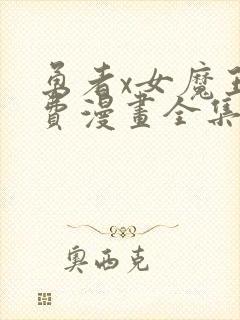 勇者x女魔王
費漫畫全集
奧西克